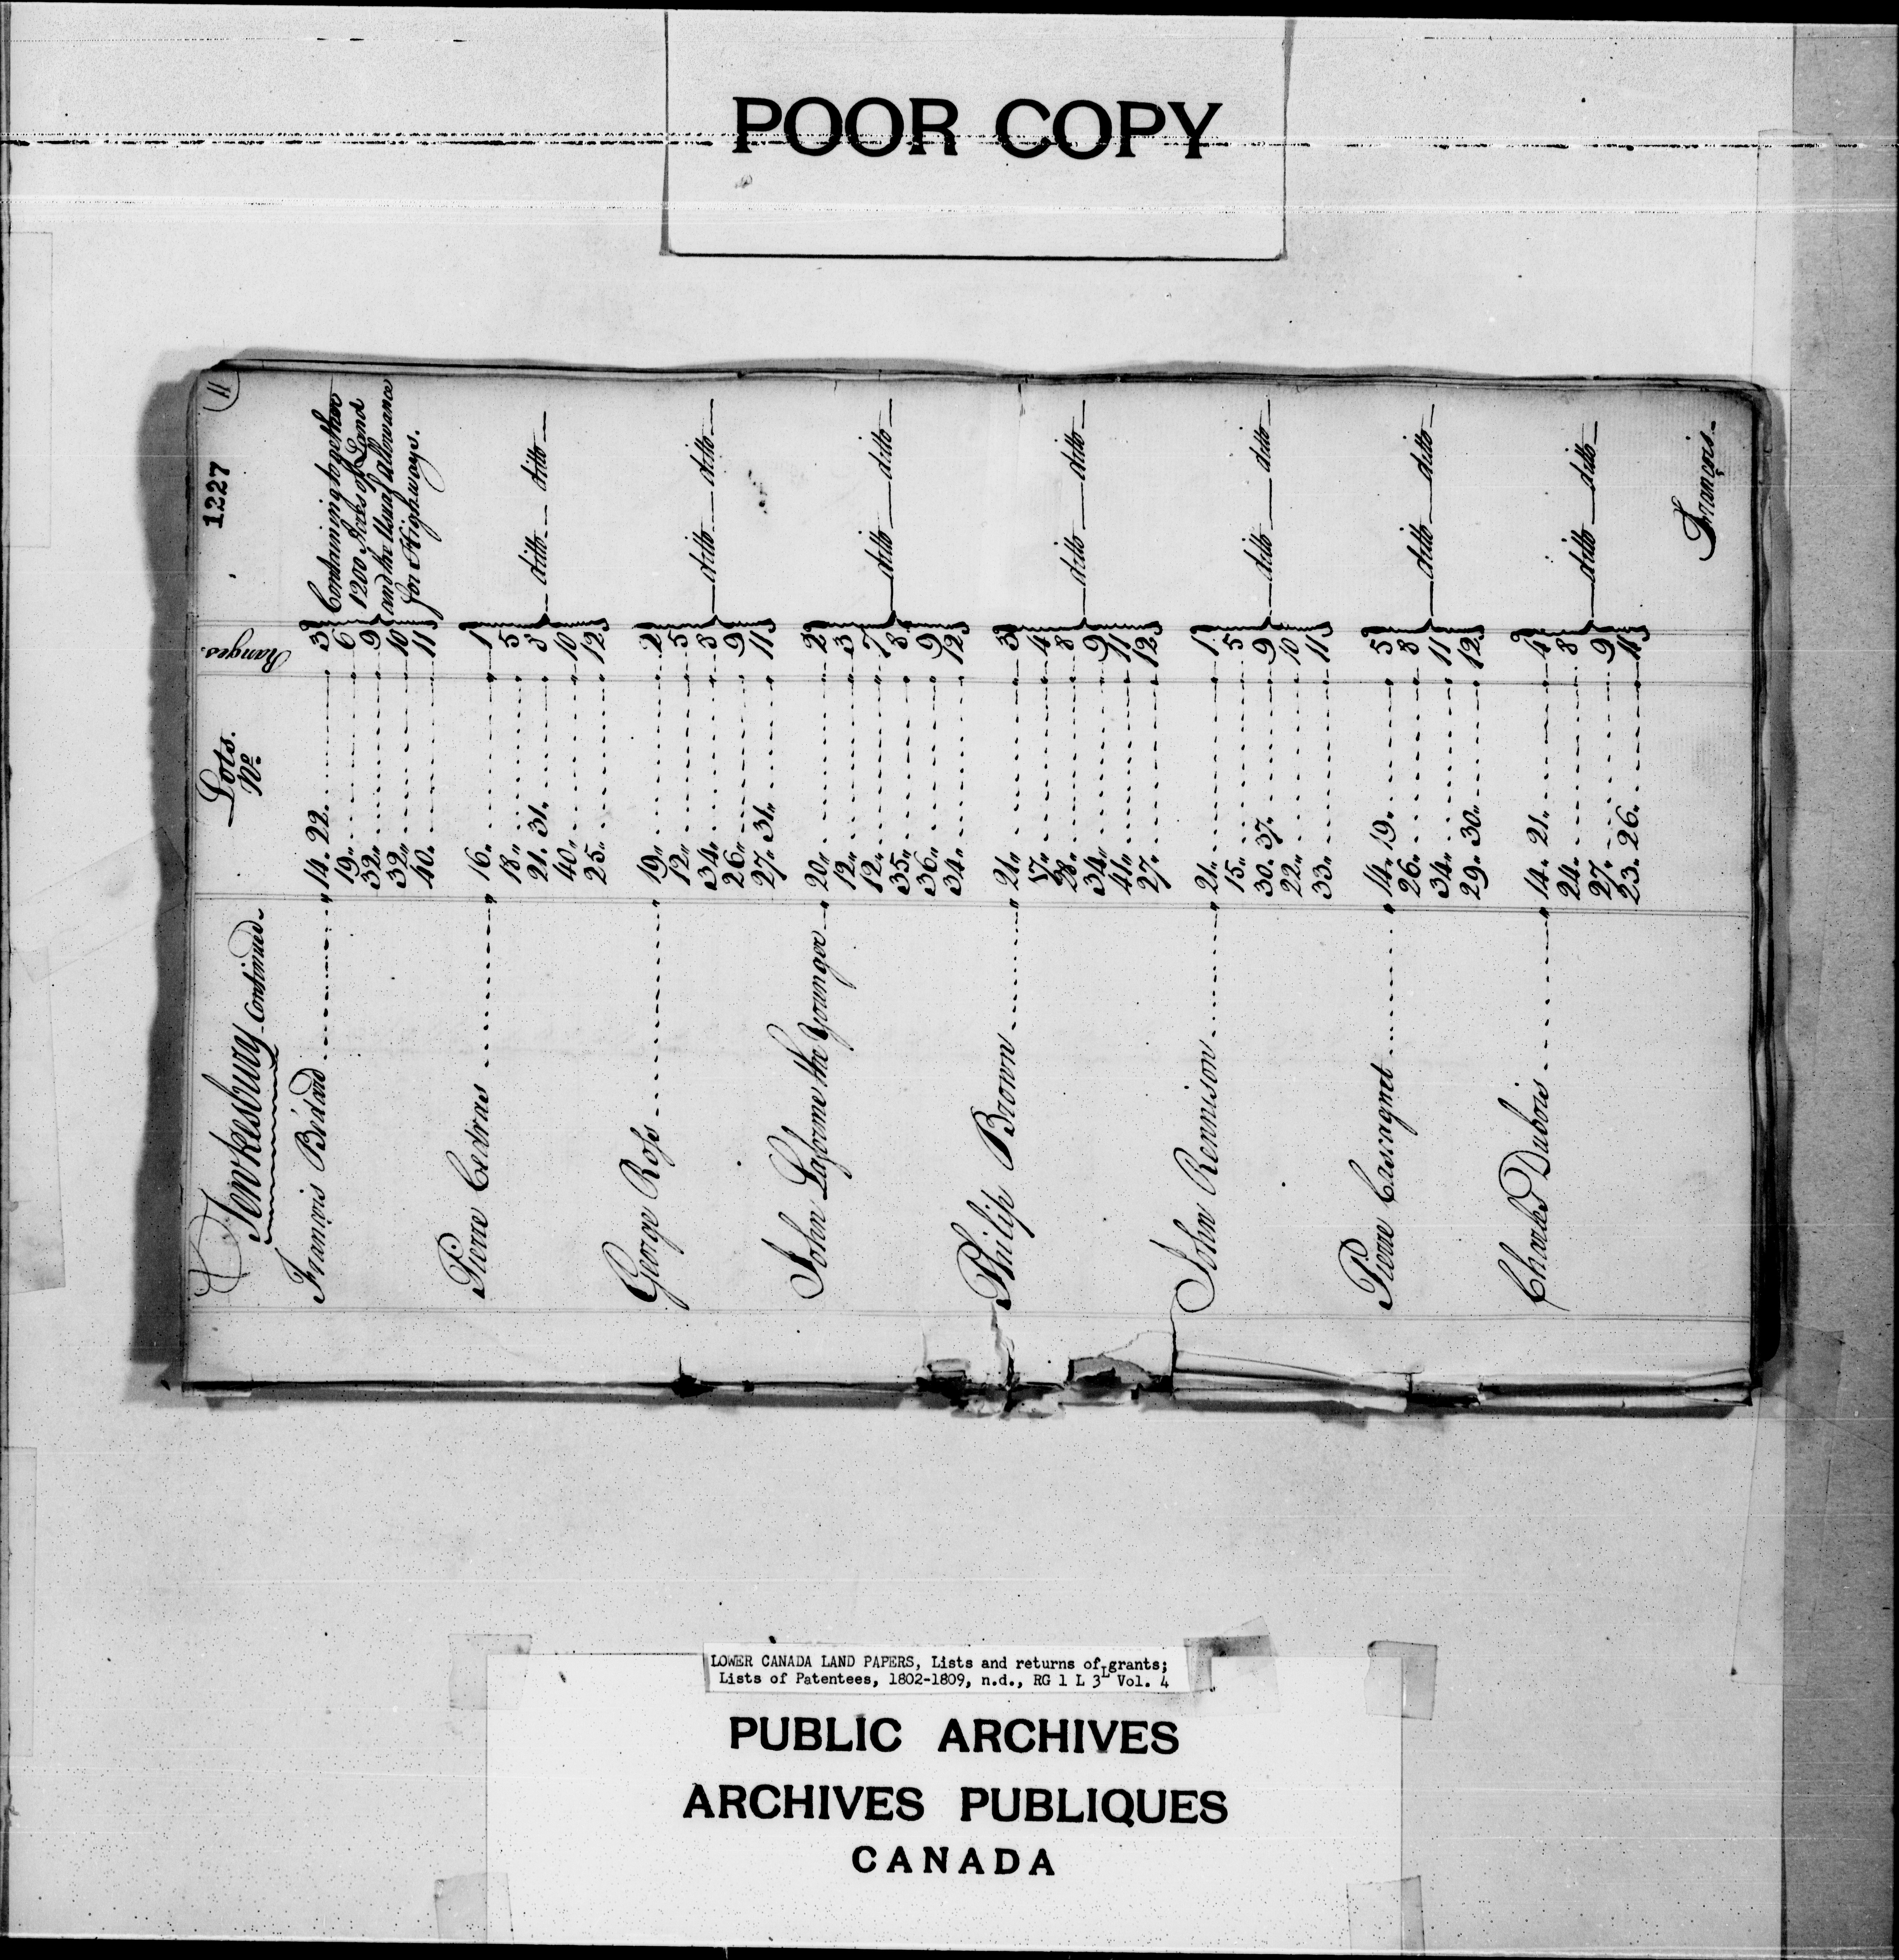 POOR COPY
1227
11
Tewkesbury Continued.
Lots. No.
Ranges.
François Bédard 14. 22. 3 Containing together
19. 6 1200 Acres of Land
32. 9 and the Usual allowance
32. 10 for Highways.
40. 11
Pierre 16. 1
18. 5
21. 31. 3 ditto ditto
40. 10
25. 12
George Ross 19. 2
12. 5
34. 3 ditto ditto
26. 9
27. 31. 11
John Laforme the Younger 20. 2
12. 3
12. 7 ditto ditto
35. 8
36. 9
34. 12
Philip Brown 21. 3
17. 4
28. 8 ditto ditto
34. 9
41. 11
27. 12
John Rennison 21. 1
15. 5
30. 37. 9 ditto ditto
22. 10
33. 11
Pierre Casagnet 14. 19. 5
26. 8 ditto ditto
34. 11
29. 30. 12
Charles Dubois 14. 21. 4
24. 8 ditto ditto
27. 9
23. 26. 11
François
LOWER CANADA LAND PAPERS, Lists and returns of grants;
Lists of Patentees, 1802-1809, n.d., RG 1 L 3L Vol. 4
PUBLIC ARCHIVES
ARCHIVES PUBLIQUES
CANADA